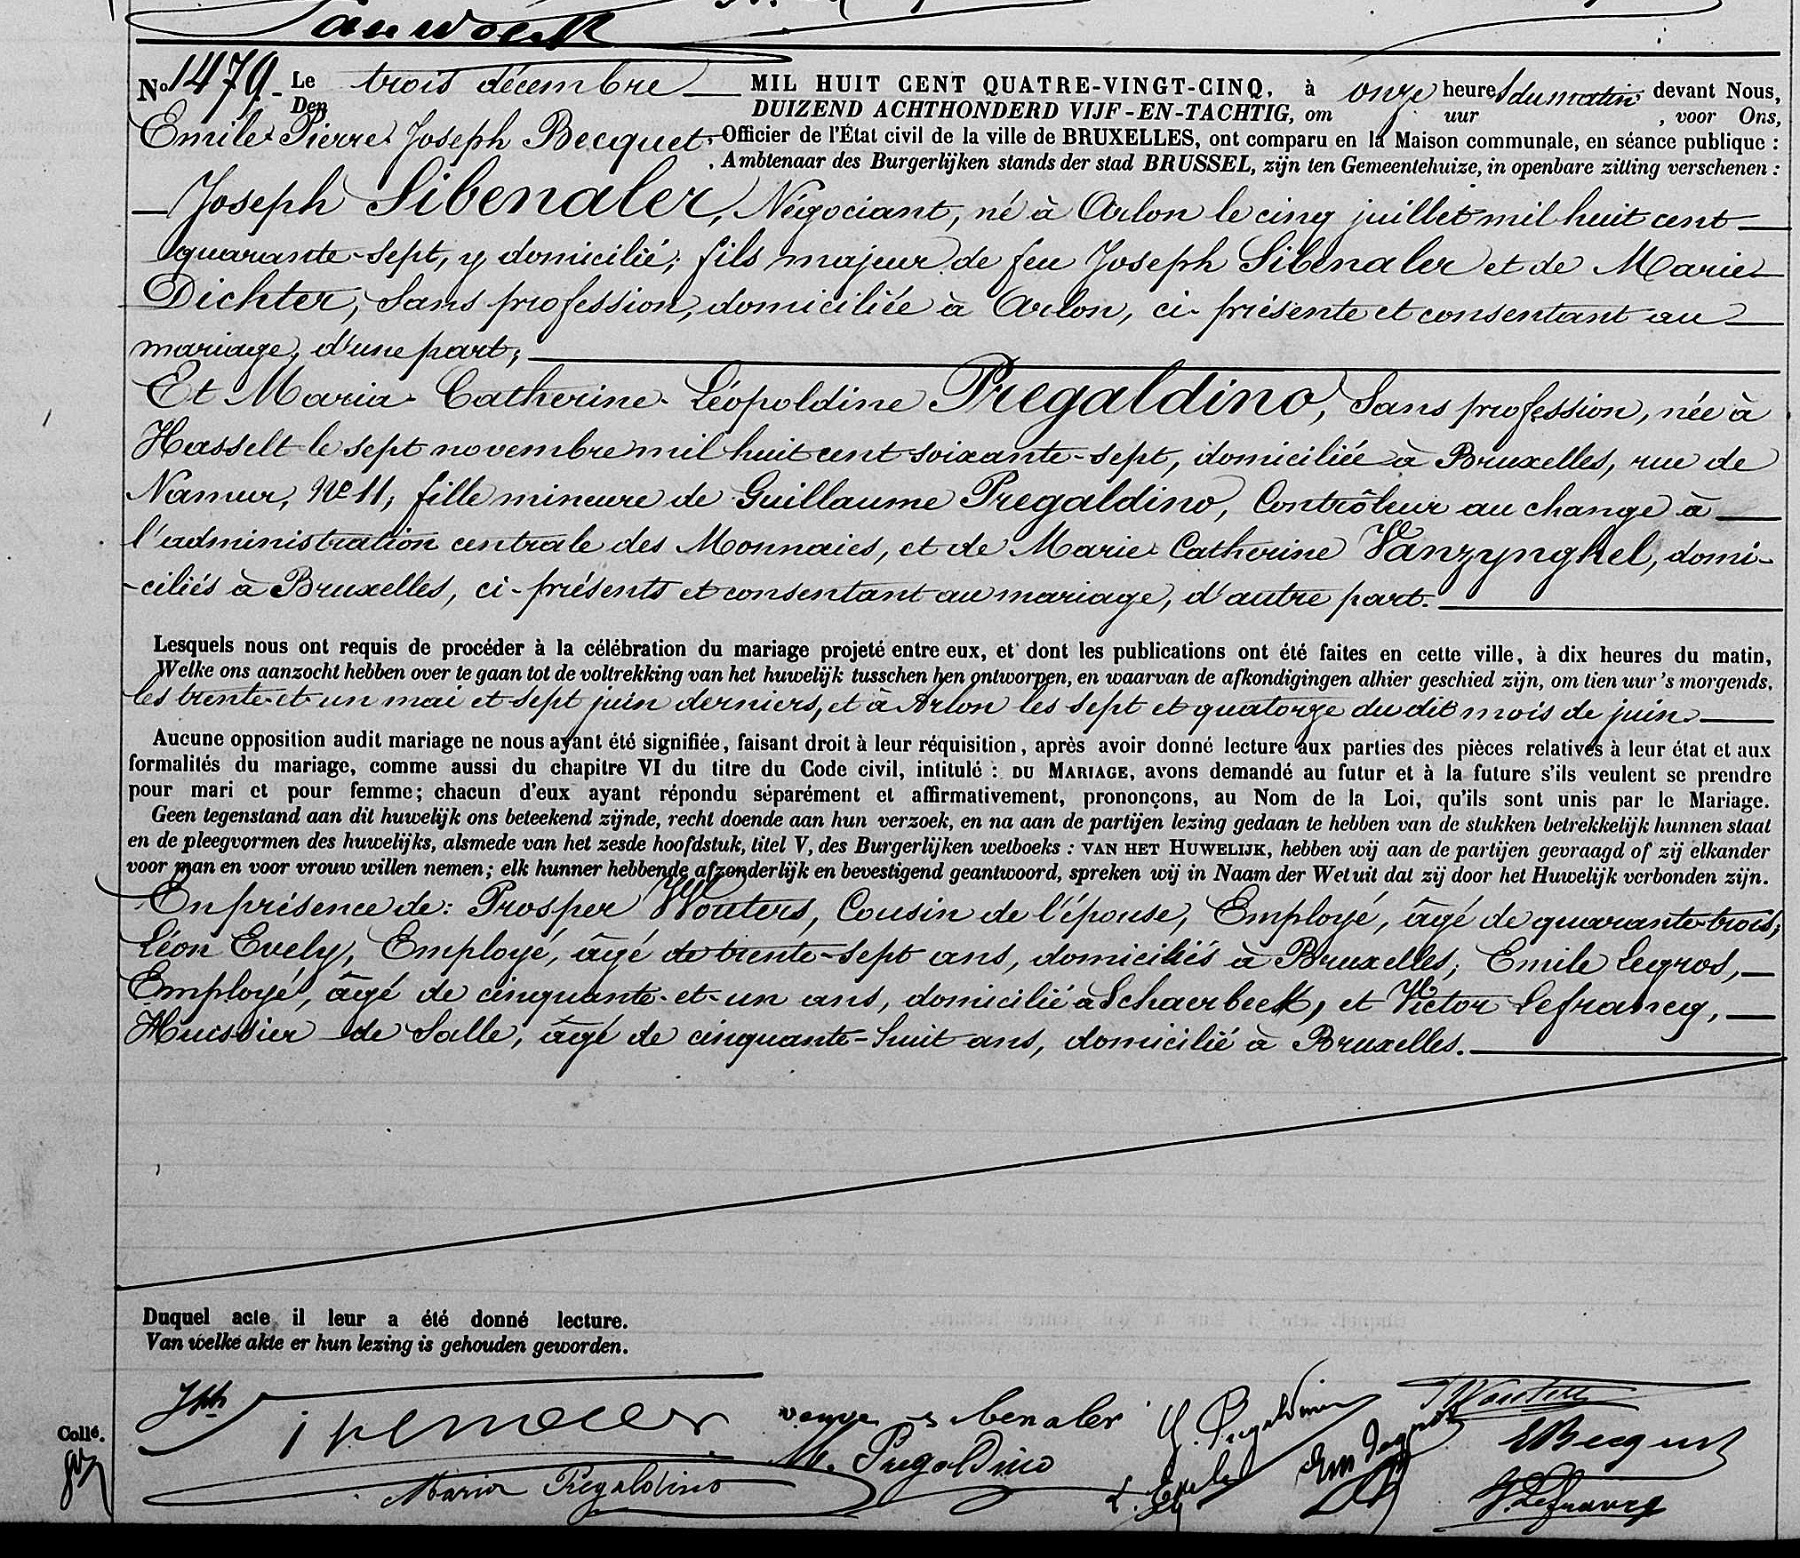 Nº 1479. Le trois décembre MIL HUIT CENT QUATRE-VINGT-CINQ, à onze heures du matin devant Nous,
Den DUIZEND ACHTHONDERD VIJF-EN-TACHTIG, om uur , voor Ons,
Emile Pierre Joseph Becquet, Officier de l'État civil de la ville de BRUXELLES, ont comparu en la Maison communale, en séance publique :
, Ambtenaar des Burgerlijken stands der stad BRUSSEL, zijn ten Gemeentehuize, in openbare zitting verschenen :
Joseph Sibenaler, Négociant, né à Arlon le cinq juillet mil huit cent
quarante-sept, y domicilié; fils majeur de feu Joseph Sibenaler et de Marie
Dichter, Sans profession, domiciliée à Arlon, ci-présente et consentant au
mariage, d'une part;
Et Maria Catherine Léopoldine Pregaldino, Sans profession, née à
Hasselt le sept novembre mil huit cent soixante-sept, domiciliée à Bruxelles, rue de
Namur, Nº 11, fille mineure de Guillaume Pregaldino, Contrôleur au change à
l'administration centrale des Monnaies, et de Marie Catherine Vanzynghel, domi-
-ciliés à Bruxelles, ci-présents et consentant au mariage, d'autre part.
Lesquels nous ont requis de procéder à la célébration du mariage projeté entre eux, et dont les publications ont été faites en cette ville, à dix heures du matin,
Welke ons aanzocht hebben over te gaan tot de voltrekking van het huwelijk tusschen hen ontworpen, en waarvan de afkondigingen alhier geschied zijn, om tien uur 's morgends.
les trente-et-un mai et sept juin derniers, et à Arlon les sept et quatorze du dit mois de juin.
Aucune opposition audit mariage ne nous ayant été signifiée, faisant droit à leur réquisition, après avoir donné lecture aux parties des pièces relatives à leur état et aux
formalités du mariage, comme aussi du chapitre VI du titre du Code civil, intitulé : DU MARIAGE, avons demandé au futur et à la future s'ils veulent se prendre
pour mari et pour femme; chacun d'eux ayant répondu séparément et affirmativement, prononçons, au Nom de la Loi, qu'ils sont unis par le Mariage.
Geen tegenstand aan dit huwelijk ons beteekend zijnde, recht doende aan hun verzoek, en na aan de partijen lezing gedaan te hebben van de stukken betrekkelijk hunnen staat
en de pleegvormen des huwelijks, alsmede van het zesde hoofdstuk, titel V, des Burgerlijken wetboeks : VAN HET HUWELIJK, hebben wij aan de partijen gevraagd of zij elkander
voor man en voor vrouw willen nemen; elk hunner hebbende afzonderlijk en bevestigend geantwoord, spreken wij in Naam der Wet uit dat zij door het Huwelijk verbonden zijn.
En présence de : Prosper Wouters, Cousin de l'épouse, Employé, âgé de quarante-trois;
Léon Evely, Employé, âgé de trente-sept ans, domiciliés à Bruxelles; Emile Legros,
Employé, âgé de cinquante-et-un ans, domicilié à Schaerbeek, et Victor Lefrancq,
Huissier de Salle, âgé de cinquante-huit ans, domicilié à Bruxelles.
Duquel acte il leur a été donné lecture.
Van welke akte er hun lezing is gehouden geworden.
Jph Sibenaler veuve sibenaler G. Pregaldino Wouters
M. Pregaldino EBecquet
Collé. Maria Pregaldino L. Evely V. Lefrancq